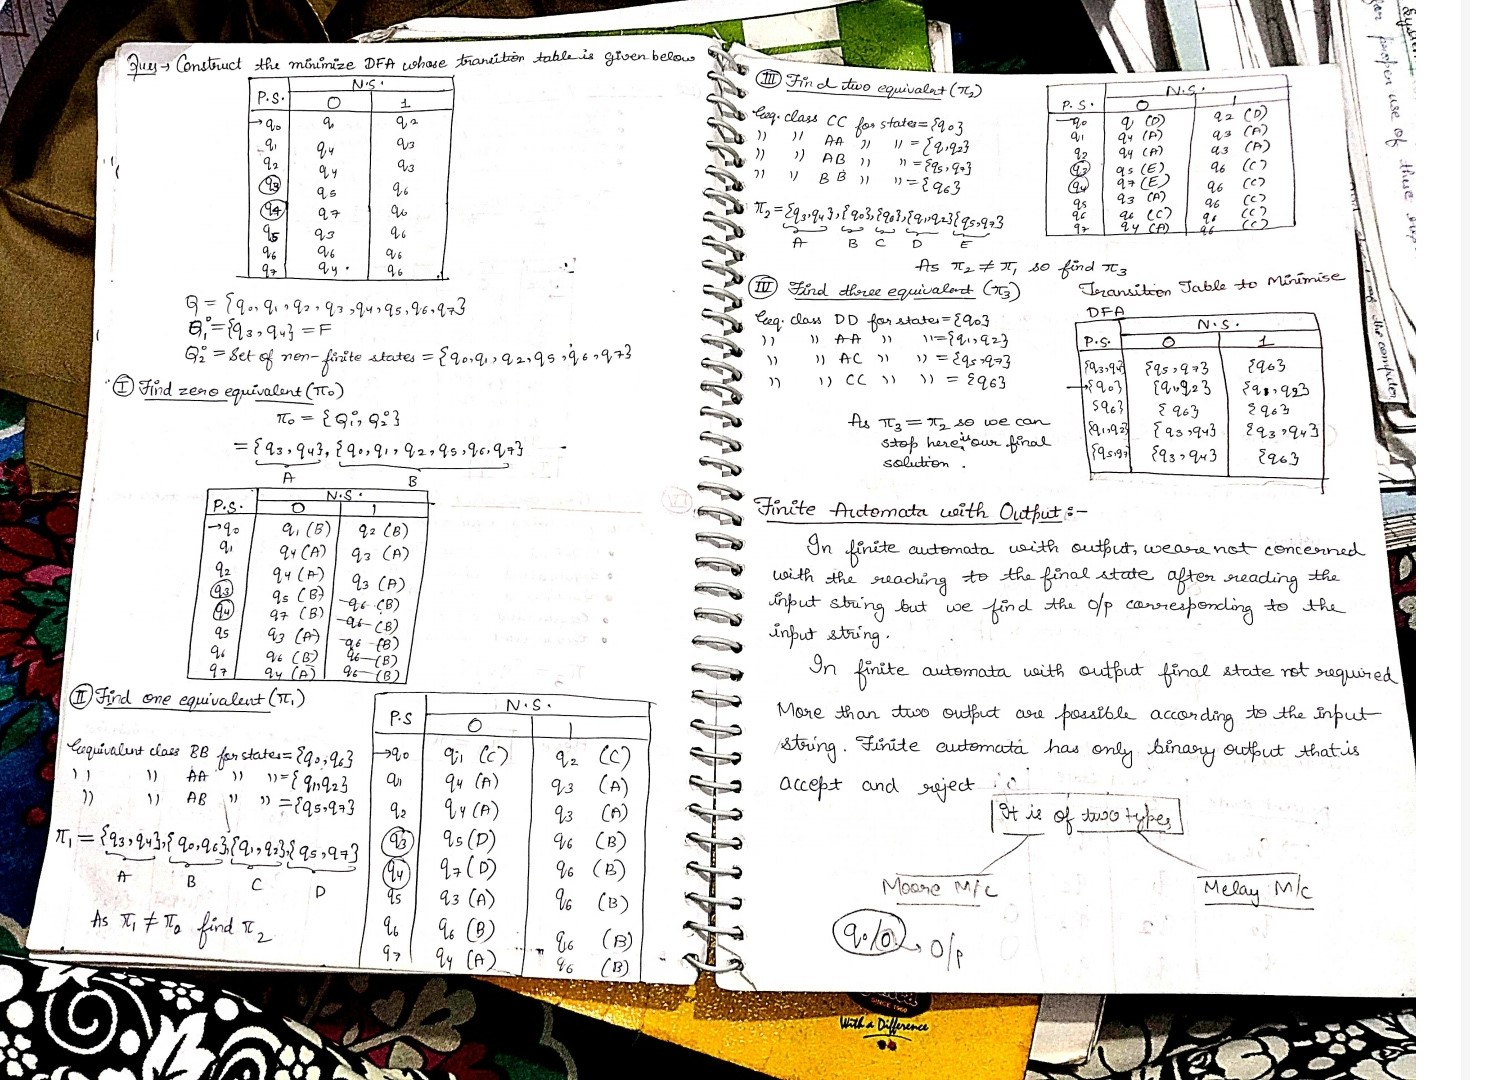 Ques → Construct the minimize DFA whose transition table is given below
P.S. N.S.
0 1
→q0 q1 q2
q1 q4 q3
q2 q4 q3
q3 q5 q6
q4 q7 q6
q5 q3 q6
q6 q6 q6
q7 q4 q6
Q = {q0, q1, q2, q3, q4, q5, q6, q7}
Q1° = {q3, q4} = F
Q2° = Set of non-finite states = {q0, q1, q2, q5, q6, q7}
I Find zero equivalent (π0)
π0 = {Q1°, Q2°}
= {q3, q4}, {q0, q1, q2, q5, q6, q7}
A B
P.S. N.S.
0 1
→q0 q1 (B) q2 (B)
q1 q4 (A) q3 (A)
q2 q4 (A) q3 (A)
q3 q5 (B) q6 (B)
q4 q7 (B) q6 (B)
q5 q3 (A) q6 (B)
q6 q6 (B) q6 (B)
q7 q4 (A) q6 (B)
II Find one equivalent (π1)
Eequivalent class BB for states = {q0, q6}
,, ,, AA ,, ,, = {q1, q2}
,, ,, AB ,, ,, = {q5, q7}
π1 = {q3, q4}, {q0, q6}, {q1, q2}, {q5, q7}
A B C D
As π1 ≠ π0 find π2
P.S N.S.
0 1
→q0 q1 (C) q2 (C)
q1 q4 (A) q3 (A)
q2 q4 (A) q3 (A)
q3 q5 (D) q6 (B)
q4 q7 (D) q6 (B)
q5 q3 (A) q6 (B)
q6 q6 (B) q6 (B)
q7 q4 (A) q6 (B)
III Find two equivalent (π2)
Eeq. class CC for states = {q0}
,, ,, AA ,, ,, = {q1, q2}
,, ,, AB ,, ,, = {q5, q7}
,, ,, BB ,, ,, = {q6}
π2 = {q3, q4}, {q0}, {q6}, {q1, q2} {q5, q7}
A B C D E
P.S. N.S.
0 1
→q0 q1 (D) q2 (D)
q1 q4 (A) q3 (A)
q2 q4 (A) q3 (A)
q3 q5 (E) q6 (C)
q4 q7 (E) q6 (C)
q5 q3 (A) q6 (C)
q6 q6 (C) q6 (C)
q7 q4 (A) q6 (C)
As π2 ≠ π1 so find π3
IIII Find three equivalent (π3)
Eeq. class DD for states = {q0}
,, ,, AA ,, ,, = {q1, q2}
,, ,, AC ,, ,, = {q5, q7}
,, ,, CC ,, ,, = {q6}
As π3 = π2 so we can
stop here is our final
solution.
Transition Table to Minimise
DFA
P.S. N.S.
0 1
{q3, q4} {q5, q7} {q6}
→{q0} {q1, q2} {q1, q2}
{q6} {q6} {q6}
{q1, q2} {q3, q4} {q3, q4}
{q5, q7 {q3, q4} {q6}
Finite Automata with Output :-
In finite automata with output, we are not concerned
with the reaching to the final state after reading the
input string but we find the o/p corresponding to the
input string.
In finite automata with output final state not required
More than two output are possible according to the input
string. Finite automata has only binary output that is
accept and reject
It is of two types
Moore M/c Melay M/c
q0/0 → O/p
for proper use of these
the computer
SINCE
With a Difference